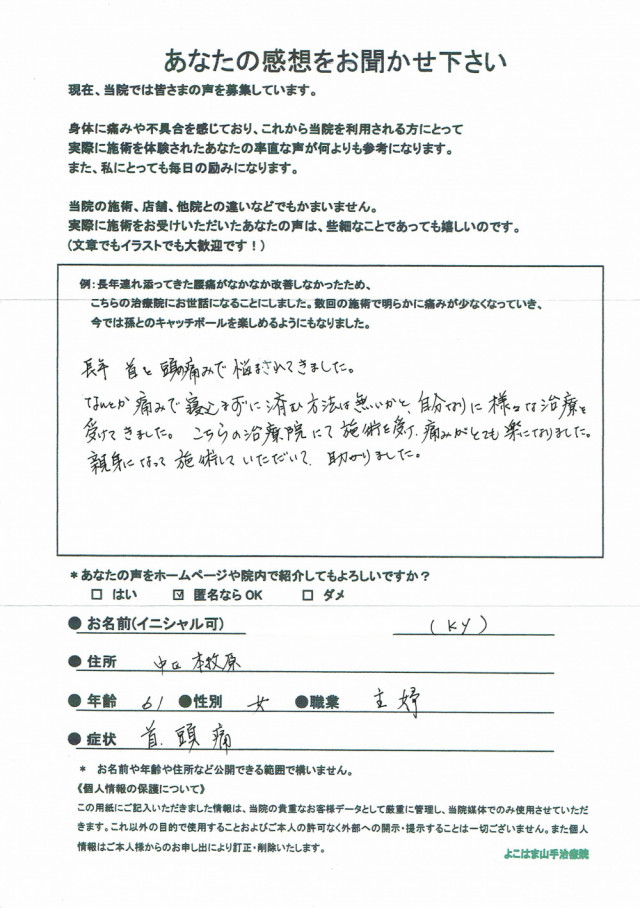 あなたの感想をお聞かせ下さい
現在、当院では皆さまの声を募集しています。
身体に痛みや不具合を感じており、これから当院を利用される方にとって
実際に施術を体験されたあなたの率直な声が何よりも参考になります。
また、私にとっても毎日の励みになります。
当院の施術、店舗、他院との違いなどでもかまいません。
実際に施術をお受けいただいたあなたの声は、些細なことであっても嬉しいのです。
(文章でもイラストでも大歓迎です！)
例：長年連れ添ってきた腰痛がなかなか改善しなかったため、
こちらの治療院にお世話になることにしました。数回の施術で明らかに痛みが少なくなっていき、
今では孫とのキャッチボールを楽しめるようにもなりました。
長年 首と頭の痛みで悩まされてきました。
なんとか痛みで寝込まずに済む方法は無いかと、自分なりに様々な治療を
受けてきました。こちらの治療院にて施術を受け、痛みがとても楽になりました。
親身になって施術していただいて、助かりました。
＊あなたの声をホームページや院内で紹介してもよろしいですか？
□ はい ☑ 匿名ならOK □ ダメ
● お名前(イニシャル可) (KY)
● 住所 中区本牧原
● 年齢 61 ●性別 女 ●職業 主婦
● 症状 首、頭痛
＊ お名前や年齢や住所など公開できる範囲で構いません。
《個人情報の保護について》
この用紙にご記入いただきました情報は、当院の貴重なお客様データとして厳重に管理し、当院媒体でのみ使用させていただ
きます。これ以外の目的で使用することおよびご本人の許可なく外部への開示・提示することは一切ございません。また個人
情報はご本人様からのお申し出により訂正・削除いたします。
よこはま山手治療院